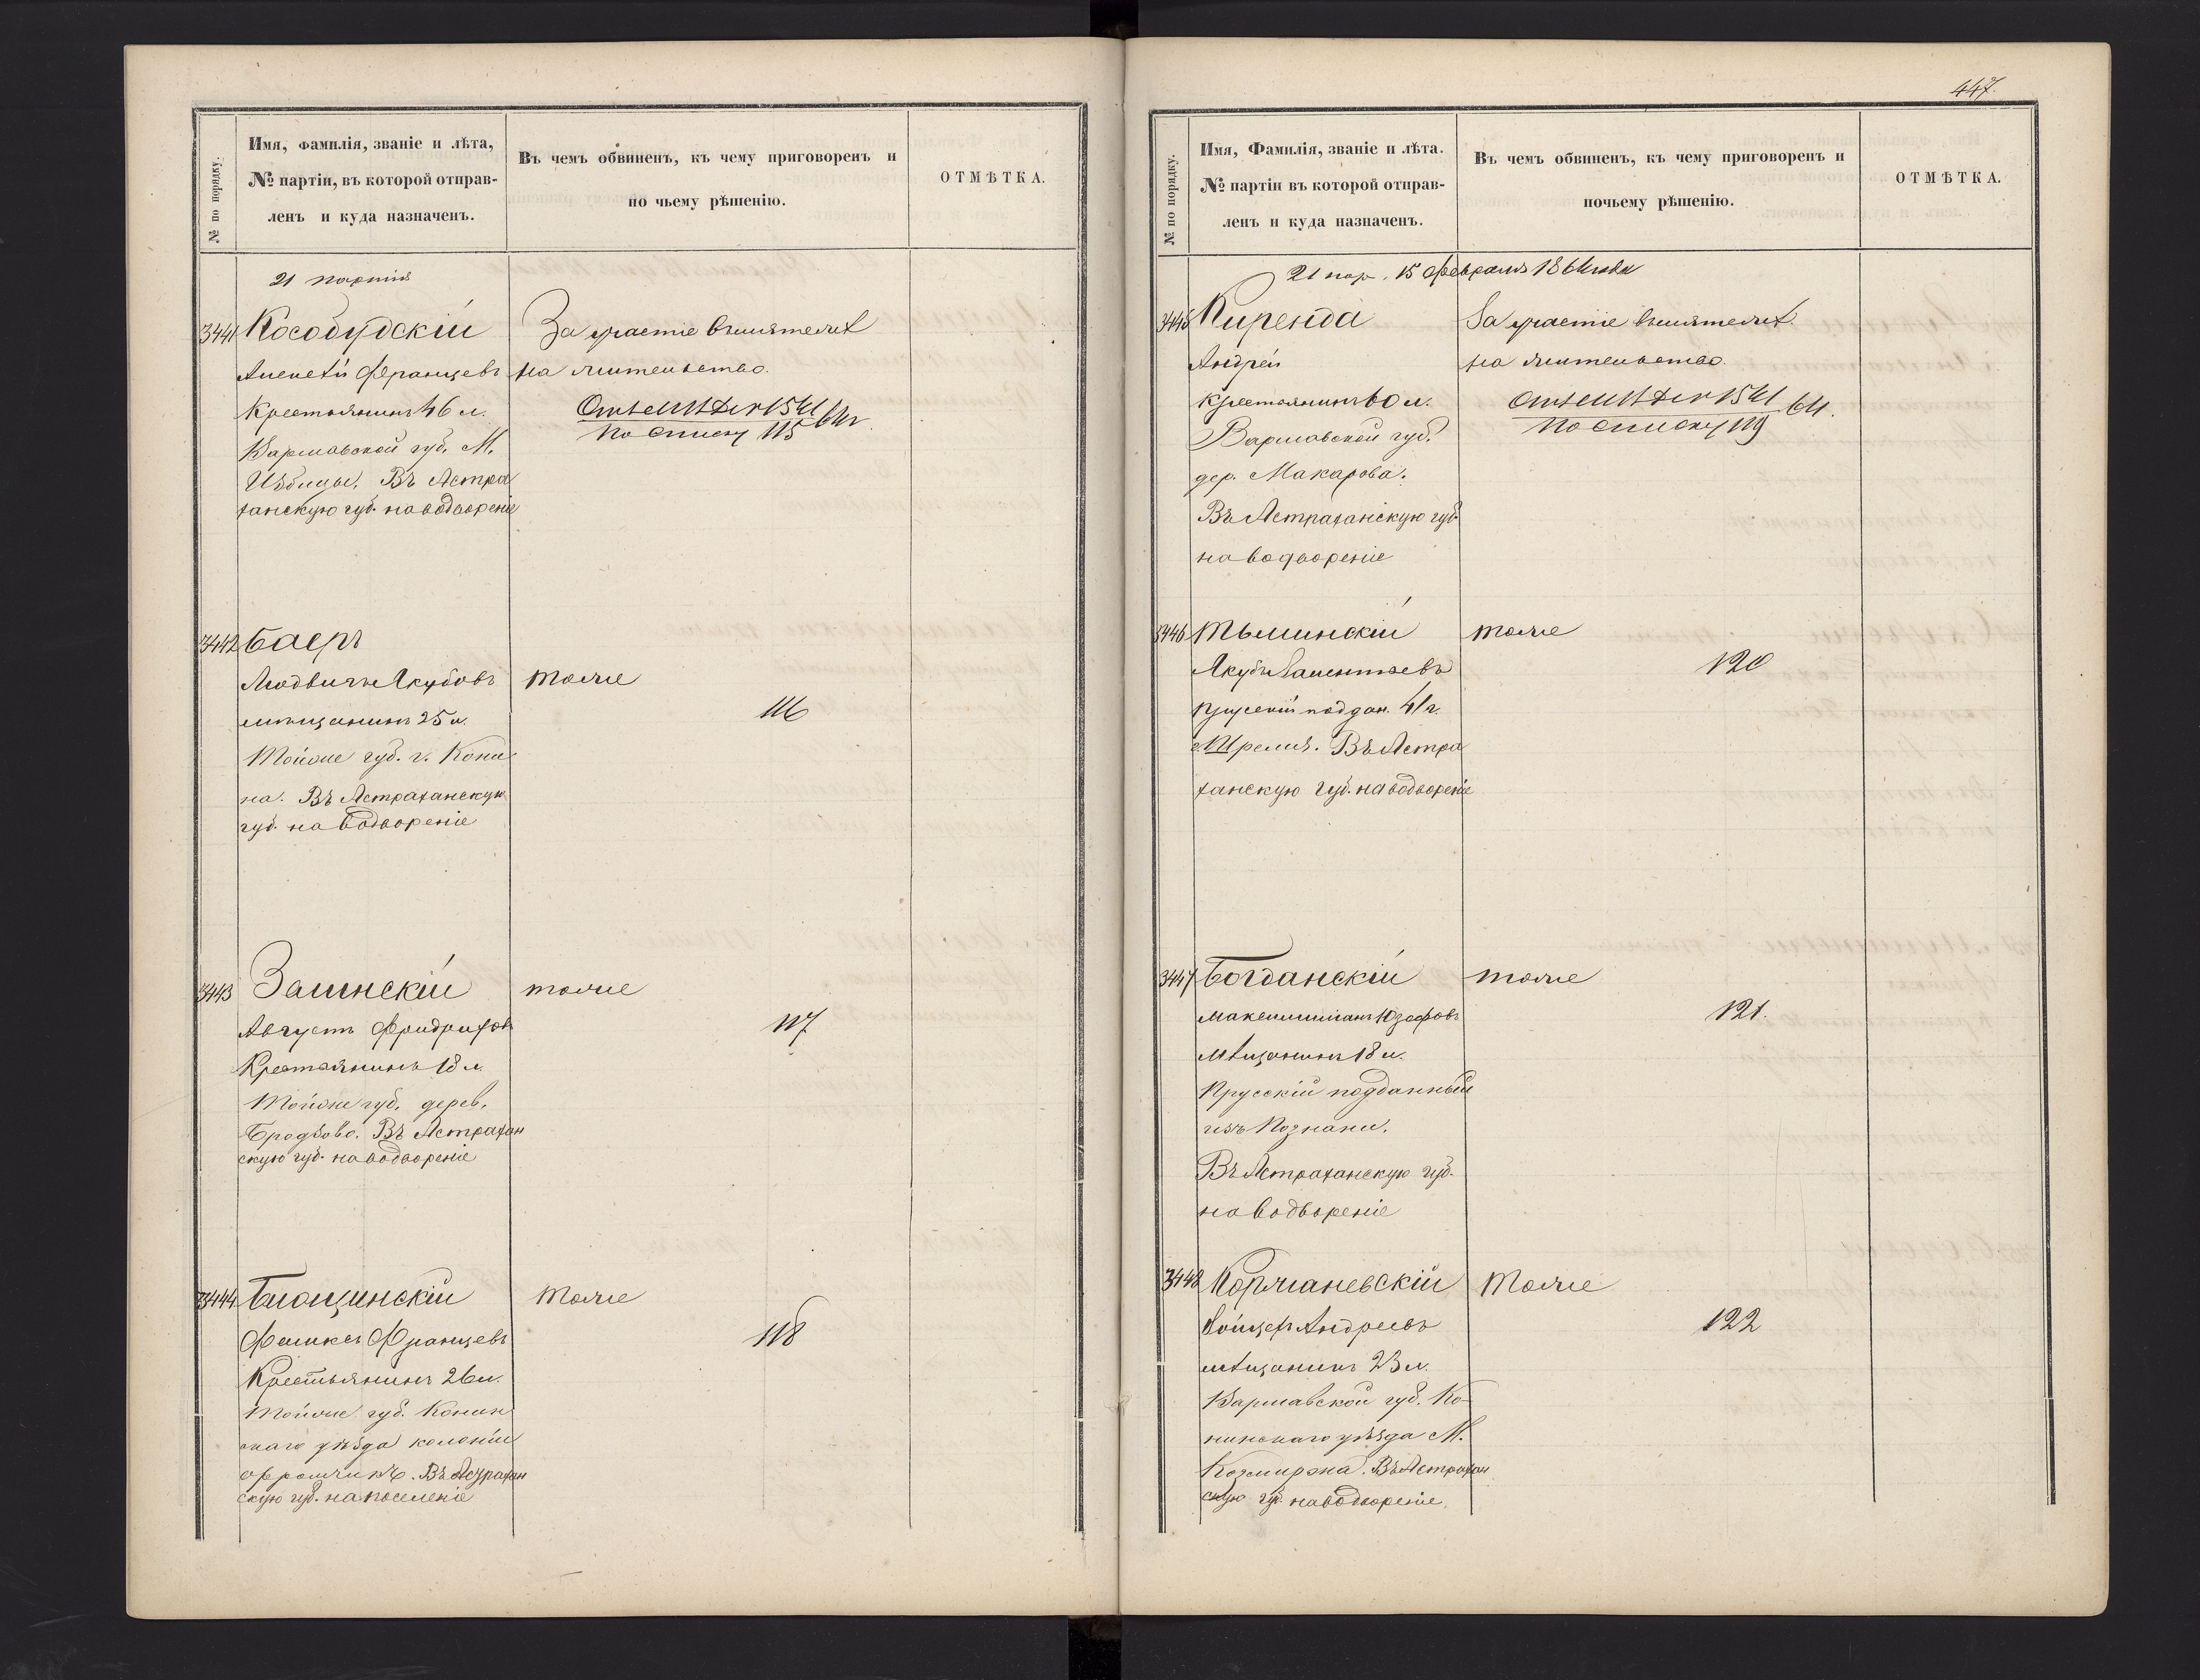 № по порядку.
Имя, Фамилія, званіе и лѣта,
№ партіи, въ которой отправ-
ленъ и куда назначенъ.
Въ чемъ обвиненъ, къ чему приговоренъ и
по чьему рѣшенію.
ОТМѢТКА.
21 партія
3441 Кособудскій
Франціевъ
Крестьянинъ 46 л.
Варшавской губ. М.
Избицы. Въ Астра
ханскую губ. на водвореніе
За участіе въ мятежѣ
на жительство.
Отн. 1541/64 г.
По списку 115
3442 Баеръ
Людвигъ Якубовъ
мѣщанинъ 25 л.
Тойже губ. г. Кони
на. Въ Астраханскую
губ. на водвореніе
тоже
116
3443 Залинскій
Августъ Фридрихов
Крестьянинъ 18 л.
Тойже губ. дерев.
Въ Астрахан
скую губ. на водвореніе
тоже
117
3444 Блощинскій
Феликсъ Францевъ
Крестьянинъ 26 л.
Тойже губ. Конин
скаго уѣзда колоніи
Въ Астрахан
скую губ. на поселеніе
тоже
118
447.
№ по порядку.
Имя, Фамилія, званіе и лѣта.
№ партіи въ которой отправ-
ленъ и куда назначенъ.
Въ чемъ обвиненъ, къ чему приговоренъ и
почьему рѣшенію.
ОТМѢТКА.
21 пар. 15 Февраля 1864 года
3445 Киренда
Андрей
Крестьянинъ 60 л.
Варшавской губ.
дер. Макарова.
Въ Астраханскую губ.
на водвореніе
За участіе въ мятежѣ.
на жительство.
Отн. 1541/64.
По списку 119
3446 Тылинскій
Якубъ Валентьевъ
Прусскій поддан. 41 г.
Въ Астра
ханскую губ. на водвореніе
тоже
120
3447 Богданскій
Максимиліанъ Юзефовъ
мѣщанинъ 18 л.
Прусскій подданный
изъ Познани.
Въ Астраханскую губ.
на водвореніе
тоже
121.
3448 Корманевскій
Войцехъ Андреевъ
мѣщанинъ 23 л.
Варшавской губ. Ко-
нинскаго уѣзда М.
Въ Астрахан
скую губ. на водвореніе.
тоже
122